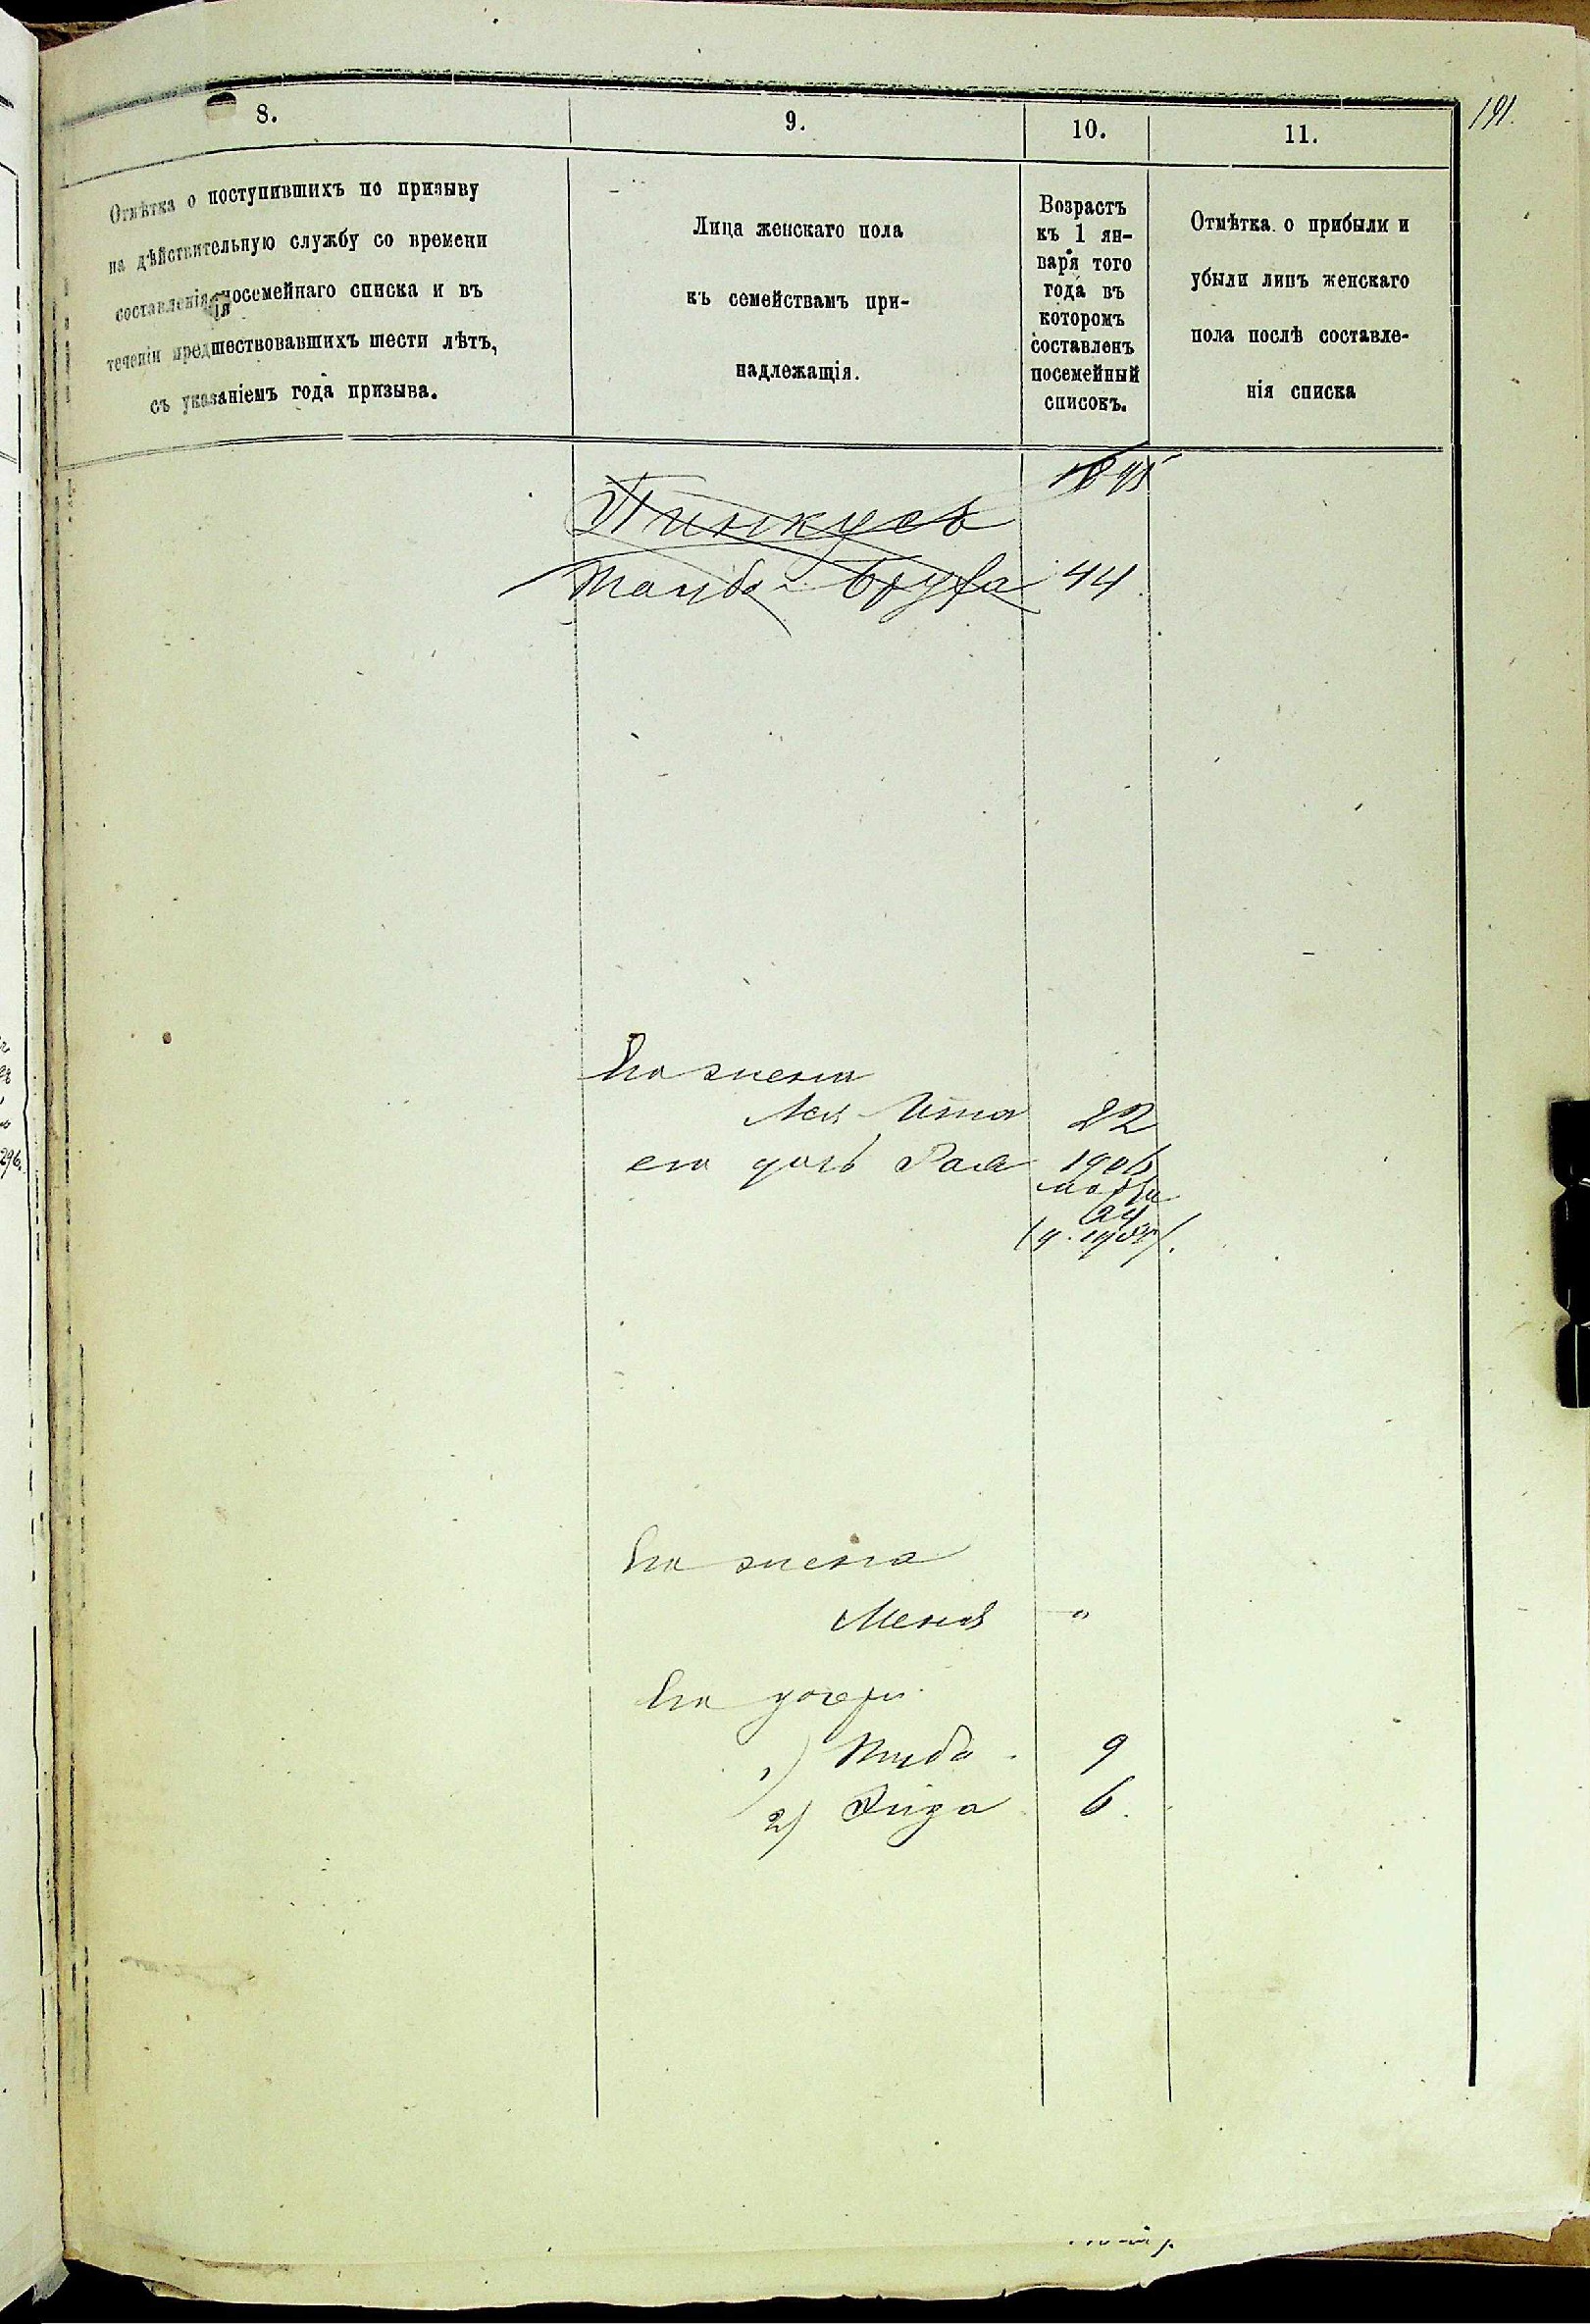 191.
8.
9.
10.
11.
Отмѣтка о поступившихъ по призыву
на дѣйствительную службу со времени
составленія посемейнаго списка и въ
теченіи предшествовавшихъ шести лѣтъ,
съ указаніемъ года призыва.
Лица женскаго пола
къ семействамъ при-
надлежащія.
Возрастъ
къ 1 ян-
варя того
года въ
которомъ
составленъ
посемейный
списокъ.
Отмѣтка о прибыли и
убыли лицъ женскаго
пола послѣ составле-
нія списка
1895
Пинкусъ
Тауба - Бруха 44.
Его жена
Лея Итта 22
его дочь Рася 1906
ноября
24
Его жена
Меня "
Его дочери
1) Тауба 9
2) Фига 6.